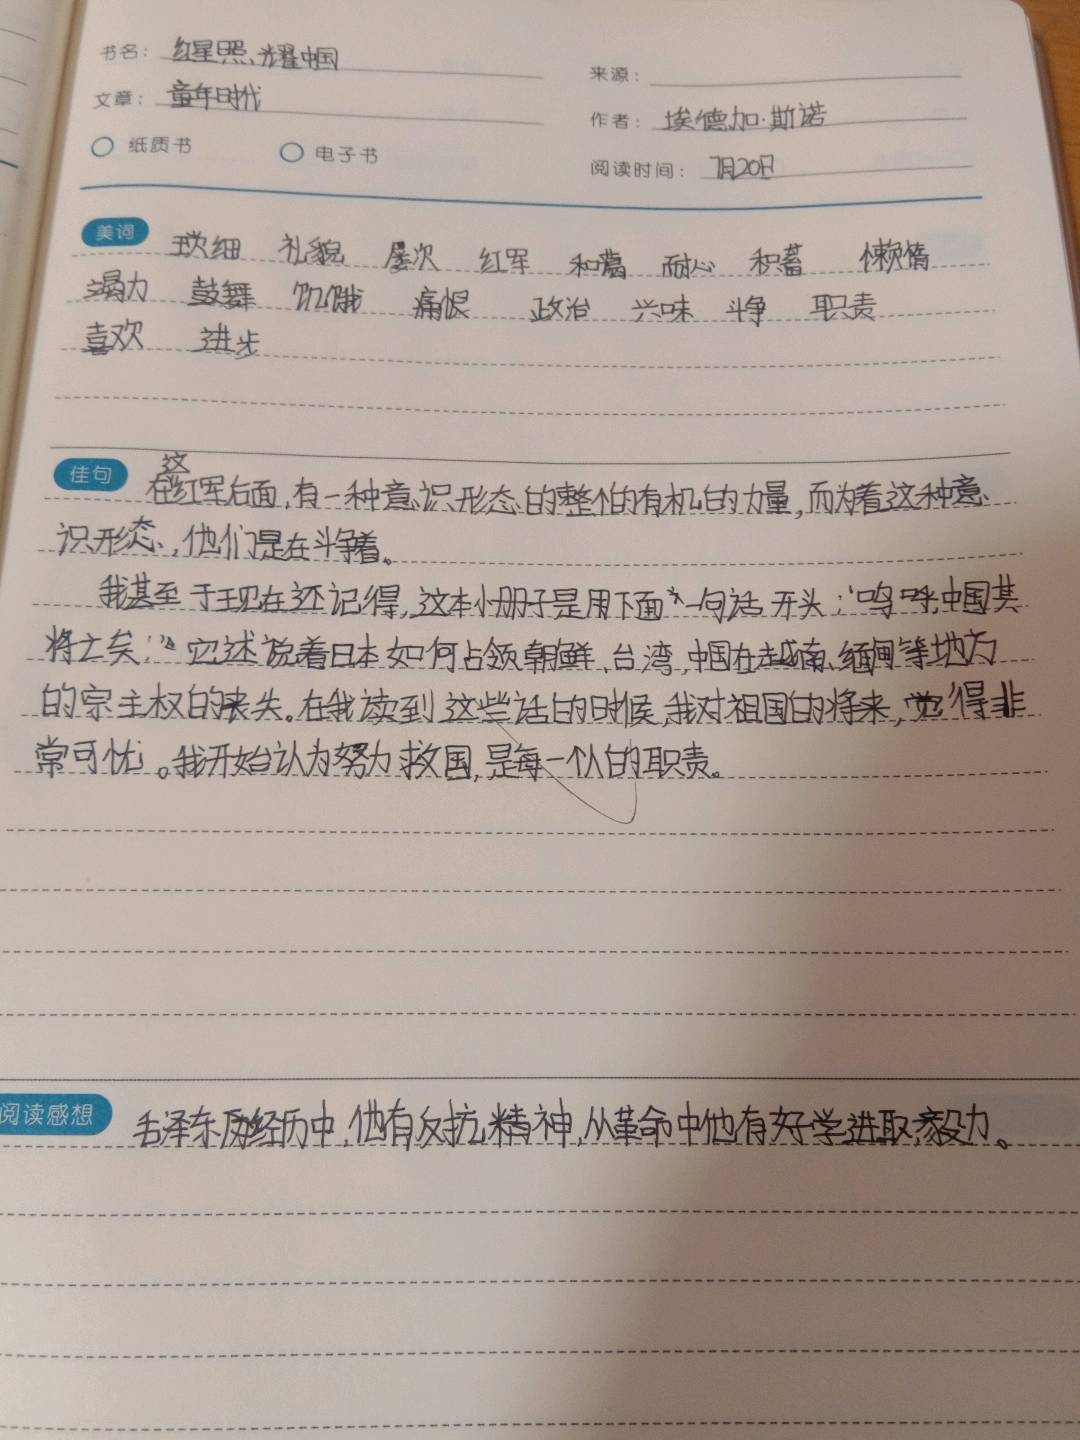 书名：红星照耀中国
来源：
文章：童年时代
作者：埃德加·斯诺
纸质书 电子书
阅读时间：7月20日
美词 琐细 礼貌 屡次 红军 和蔼 耐心 积蓄 懒惰
竭力 鼓舞 饥饿 痛恨 政治 兴味 斗争 职责
喜欢 进步
佳句 在这红军后面,有一种意识形态的整个的有机的力量,而为着这种意
识形态,他们是在斗争着。
我甚至于现在还记得,这本小册子是用下面一句话开头:“呜呼,中国其
将亡矣!”它述说着日本如何占领朝鲜、台湾,中国在越南、缅甸等地方
的宗主权的丧失。在我读到这些话的时候,我对祖国的将来,觉得非
常可忧。我开始认为努力救国,是每一个人的职责。
阅读感想 毛泽东的经历中,他有反抗精神,从革命中他有好学进取,毅力。